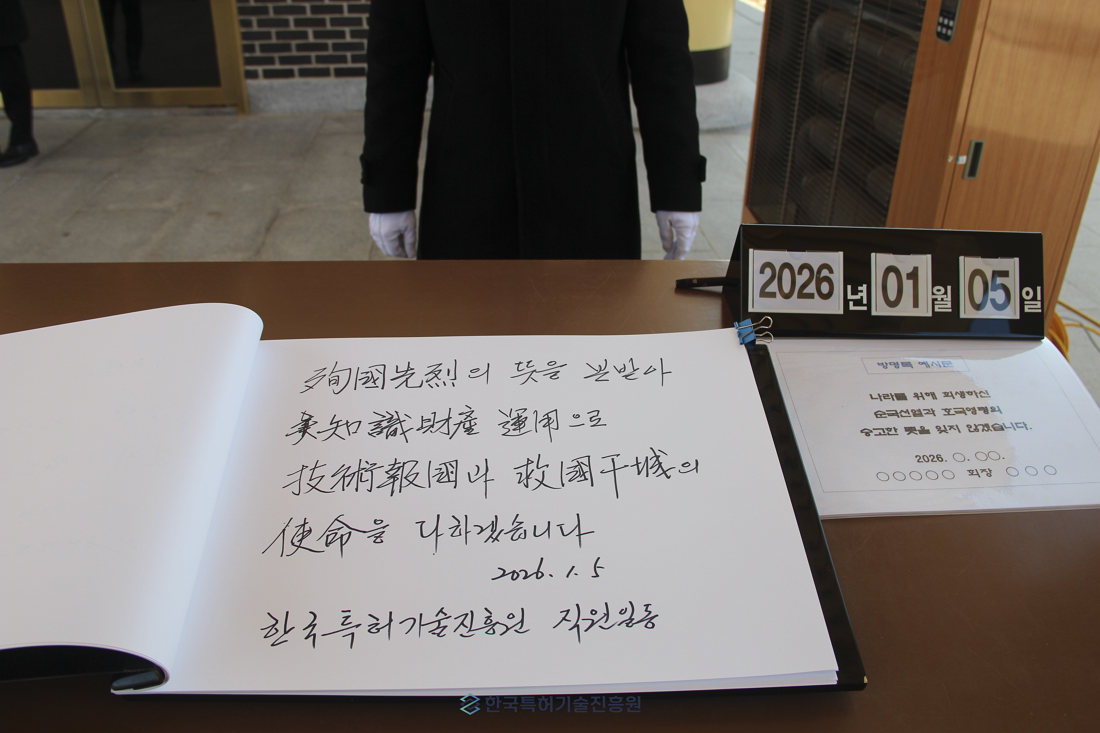 殉國先烈의 뜻을 본받아
知識財產 運用으로
技術報國과 救國干城의
使命을 다하겠습니다
2026. 1. 5
한국특허기술진흥원 직원일동
2026년 01월 05일
방명록 예시문
나라를 위해 희생하신
순국선열과 호국영령의
숭고한 뜻을 잊지 않겠습니다.
2026. ○. ○○.
○○○○○ 회장 ○○○
한국특허기술진흥원